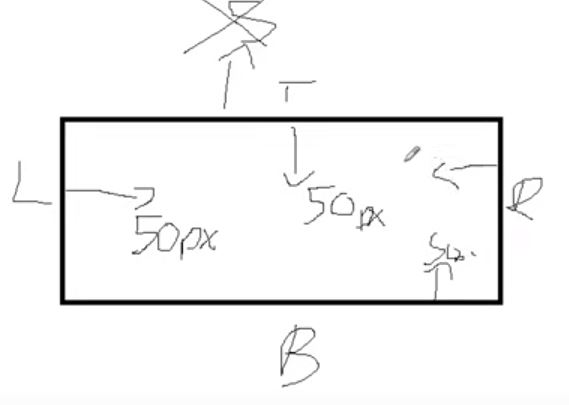 T
L
R
50px
50px
B